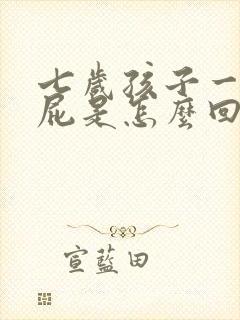 七歲孩子一
屁是怎麼回
宣藍田